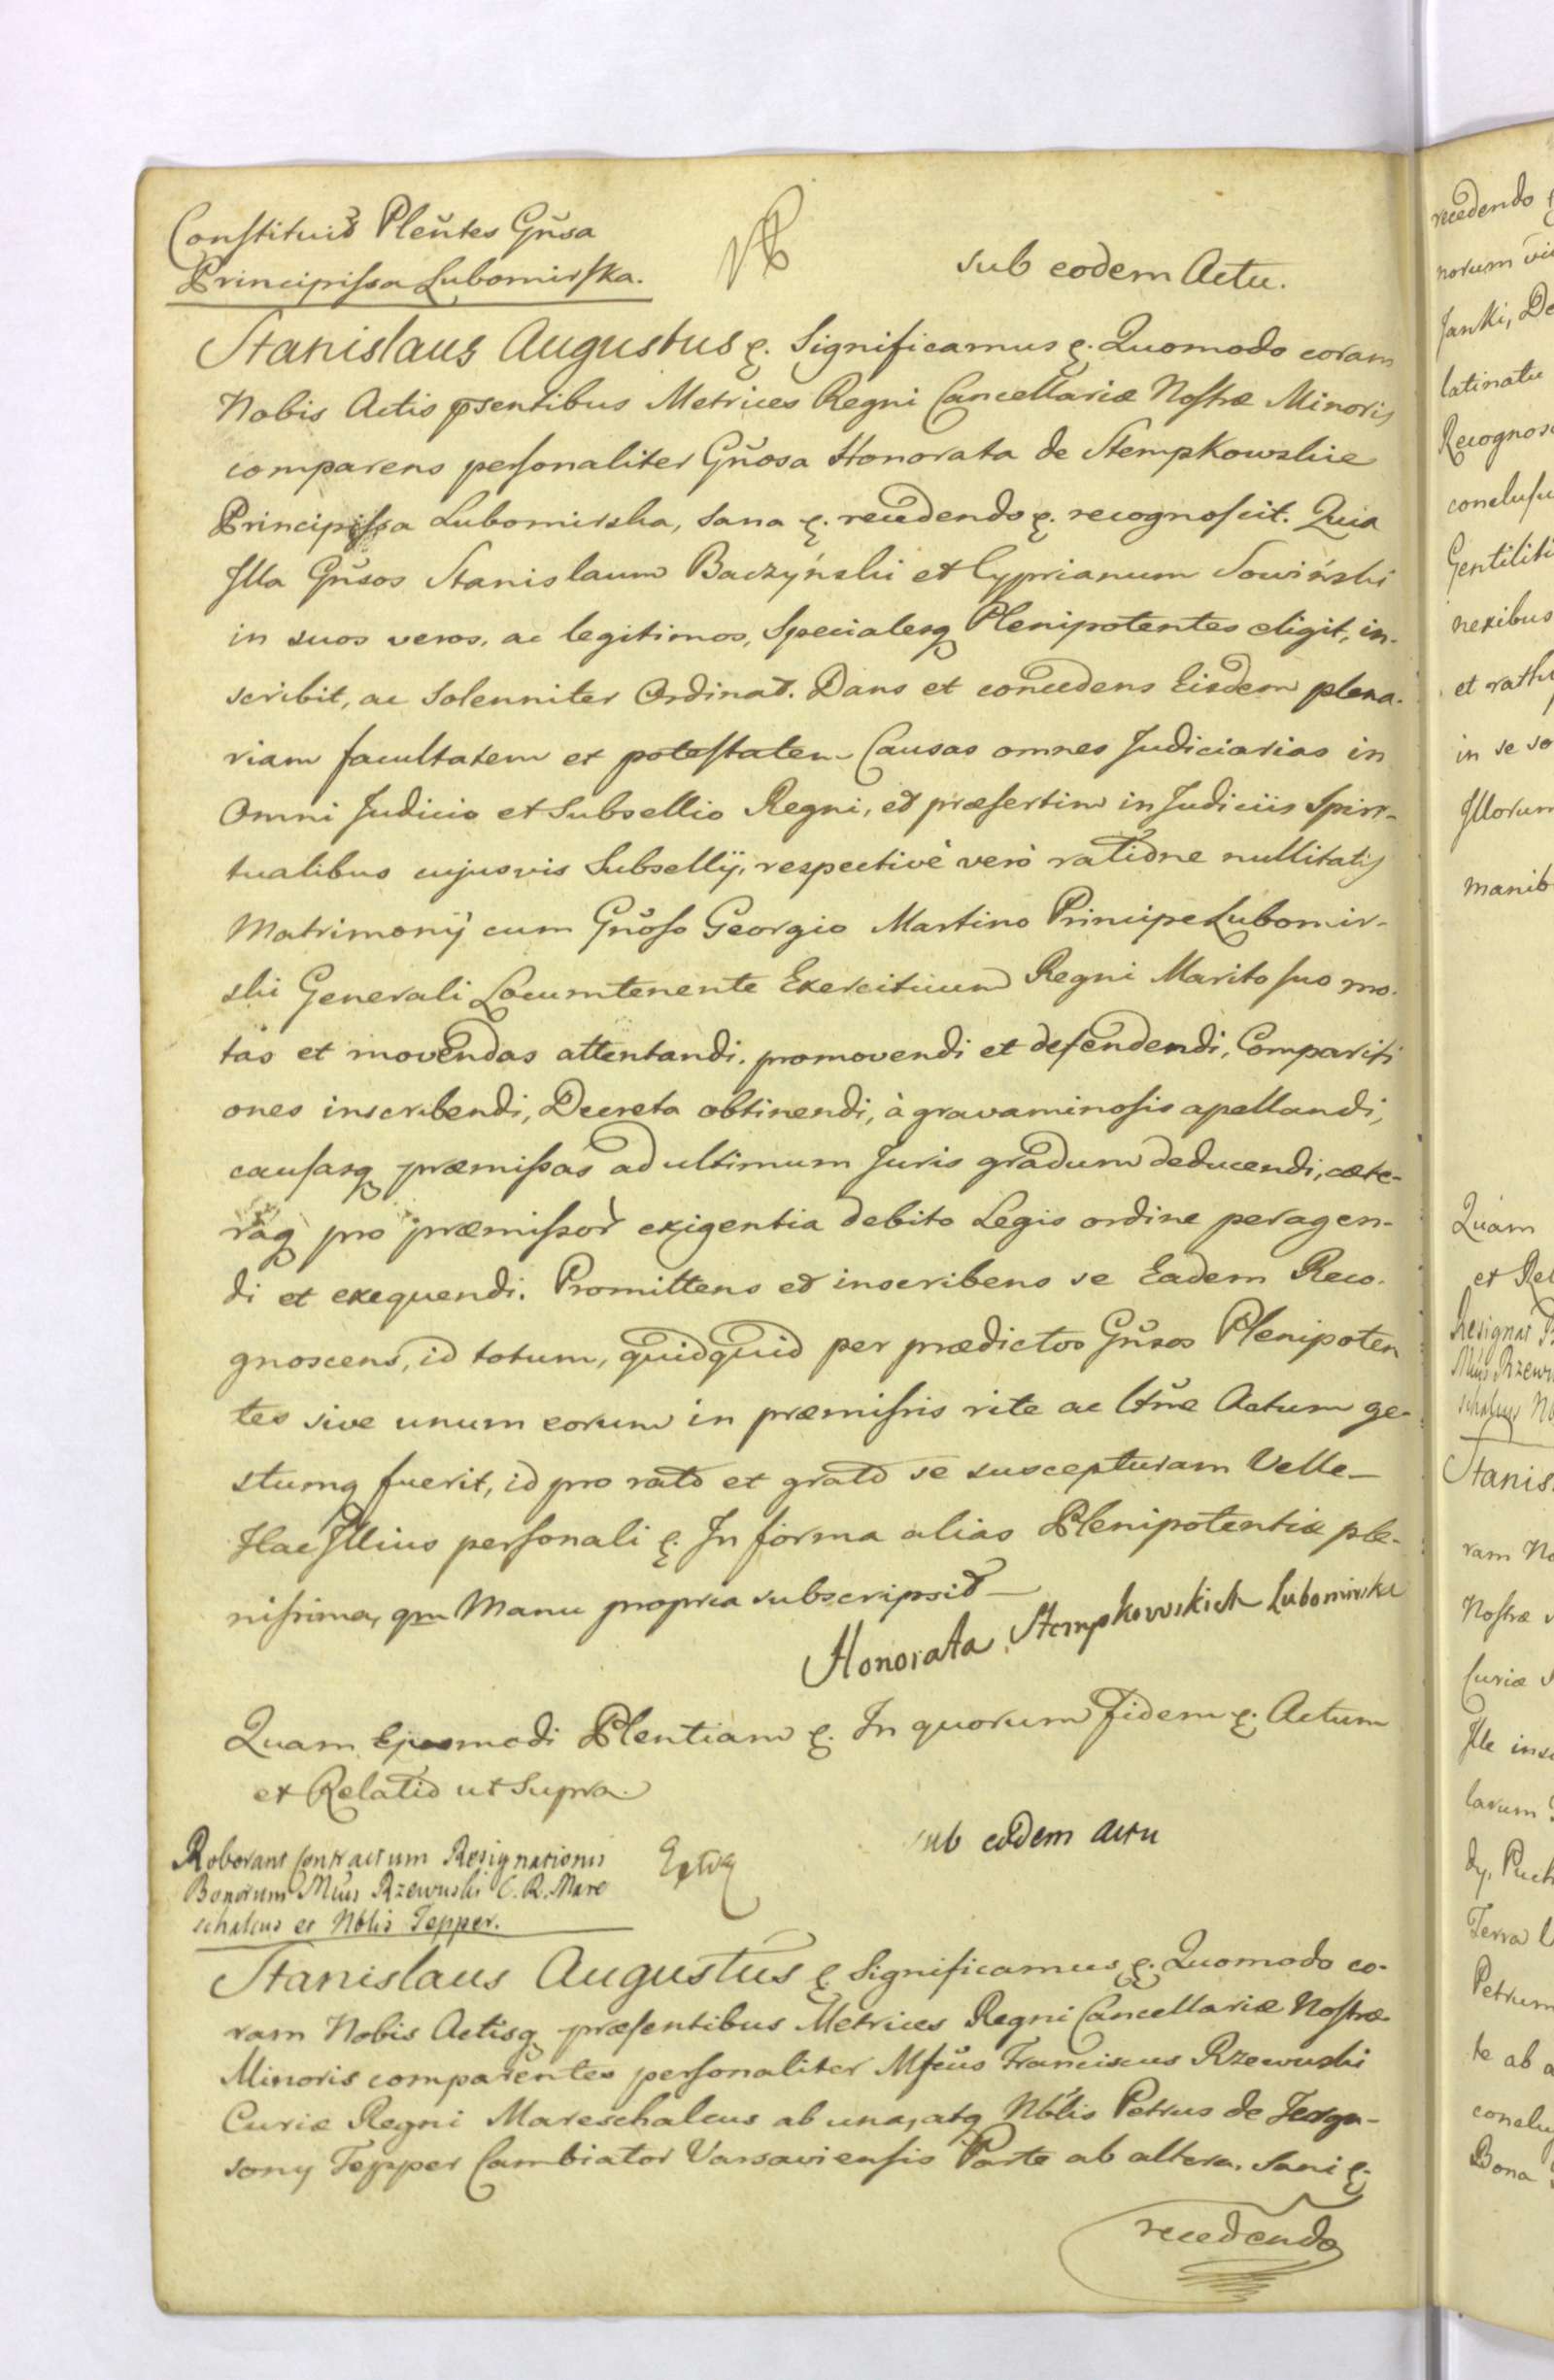 Constituit Plentes Gnsa
Principissa Lubomirska.
sub eodem Actu.
Stanislaus Augustus &. Significamus &. Quomodo coram
Nobis Actis psentibus Metrices Regni Cancellariæ Nostræ Minoris
comparens personaliter Gnosa Honorata de Stempkowskie
Principissa Lubomirska, sana &. recedendo &. recognoscit. Quia
Illa Gnsos Stanislaum Baczyński et Cyprianum Sowiński
in suos veros, ac legitimos, Specialesq Plenipotentes eligit, in-
scribit, ac Solenniter Ordinat. Dans et concedens Eisdem plena-
riam facultatem et potestatem Causas omnes Judiciarias in
Omni Judicio et Subsellio Regni, et præsertim in Judiciis Spiri-
tualibus cujusvis Subsellÿ, respectivè verò ratione nullitatis
Matrimonÿ cum Gnoso Georgio Martino Principe Lubomir-
ski Generali Locumtenente Exercituum Regni Marito suo mo-
tas et movendas attentandi, promovendi et defendendi, Compariti
ones inscribendi, Decreta obtinendi, à gravaminosis apellandi,
causasq præmissas ad ultimum Juris gradum deducendi, cæte-
raq pro præmissor exigentia debito Legis ordine peragen-
di et exequendi. Promittens et inscribens se Eadem Reco-
gnoscens, id totum, quidquid per prædictos Gnsos Plenipoten
tes sive unum eorum in præmissis rite ac ltne Actum ge-
stumq fuerit, id pro rato et grato se suscepturam Velle
Hac Illius personali &. In forma alias Plenipotentiæ ple-
nissima, qm Manu propria subscripsit
Honorata Stempkowskich Lubomirska
Quam Ejusmodi Plentiam &. In quorum Fidem &. Actum
et Relatio ut Supra.
sub eodem actu
Roborant Contractum Resignationis
Bonorum Mcus Rzewuski C. R. Mare
schalcus et Nblis Tepper.
Stanislaus Augustus & Significamus &. Quomodo co-
ram Nobis Actisq præsentibus Metrices Regni Cancellariæ Nostræ
Minoris comparentes personaliter Mfcus Franciscus Rzewuski
Curiæ Regni Mareschalcus ab una, atq Nblis Petrus de Fergu-
sony Tepper Cambiator Varsaviensis Parte ab altera. Sani &.
recedendo
recedendo
norum
Janki, De
latinatu
Recognos
conclusu
Gentiliti
nexibus
et
in se so
Illorum
manib
Quam
et Rel
Resignat
Rzewu
Stanis
ram No
Nostræ
Curiæ
Ille ins
larum
Terra
Petrum
te ab a
conclu
Bona